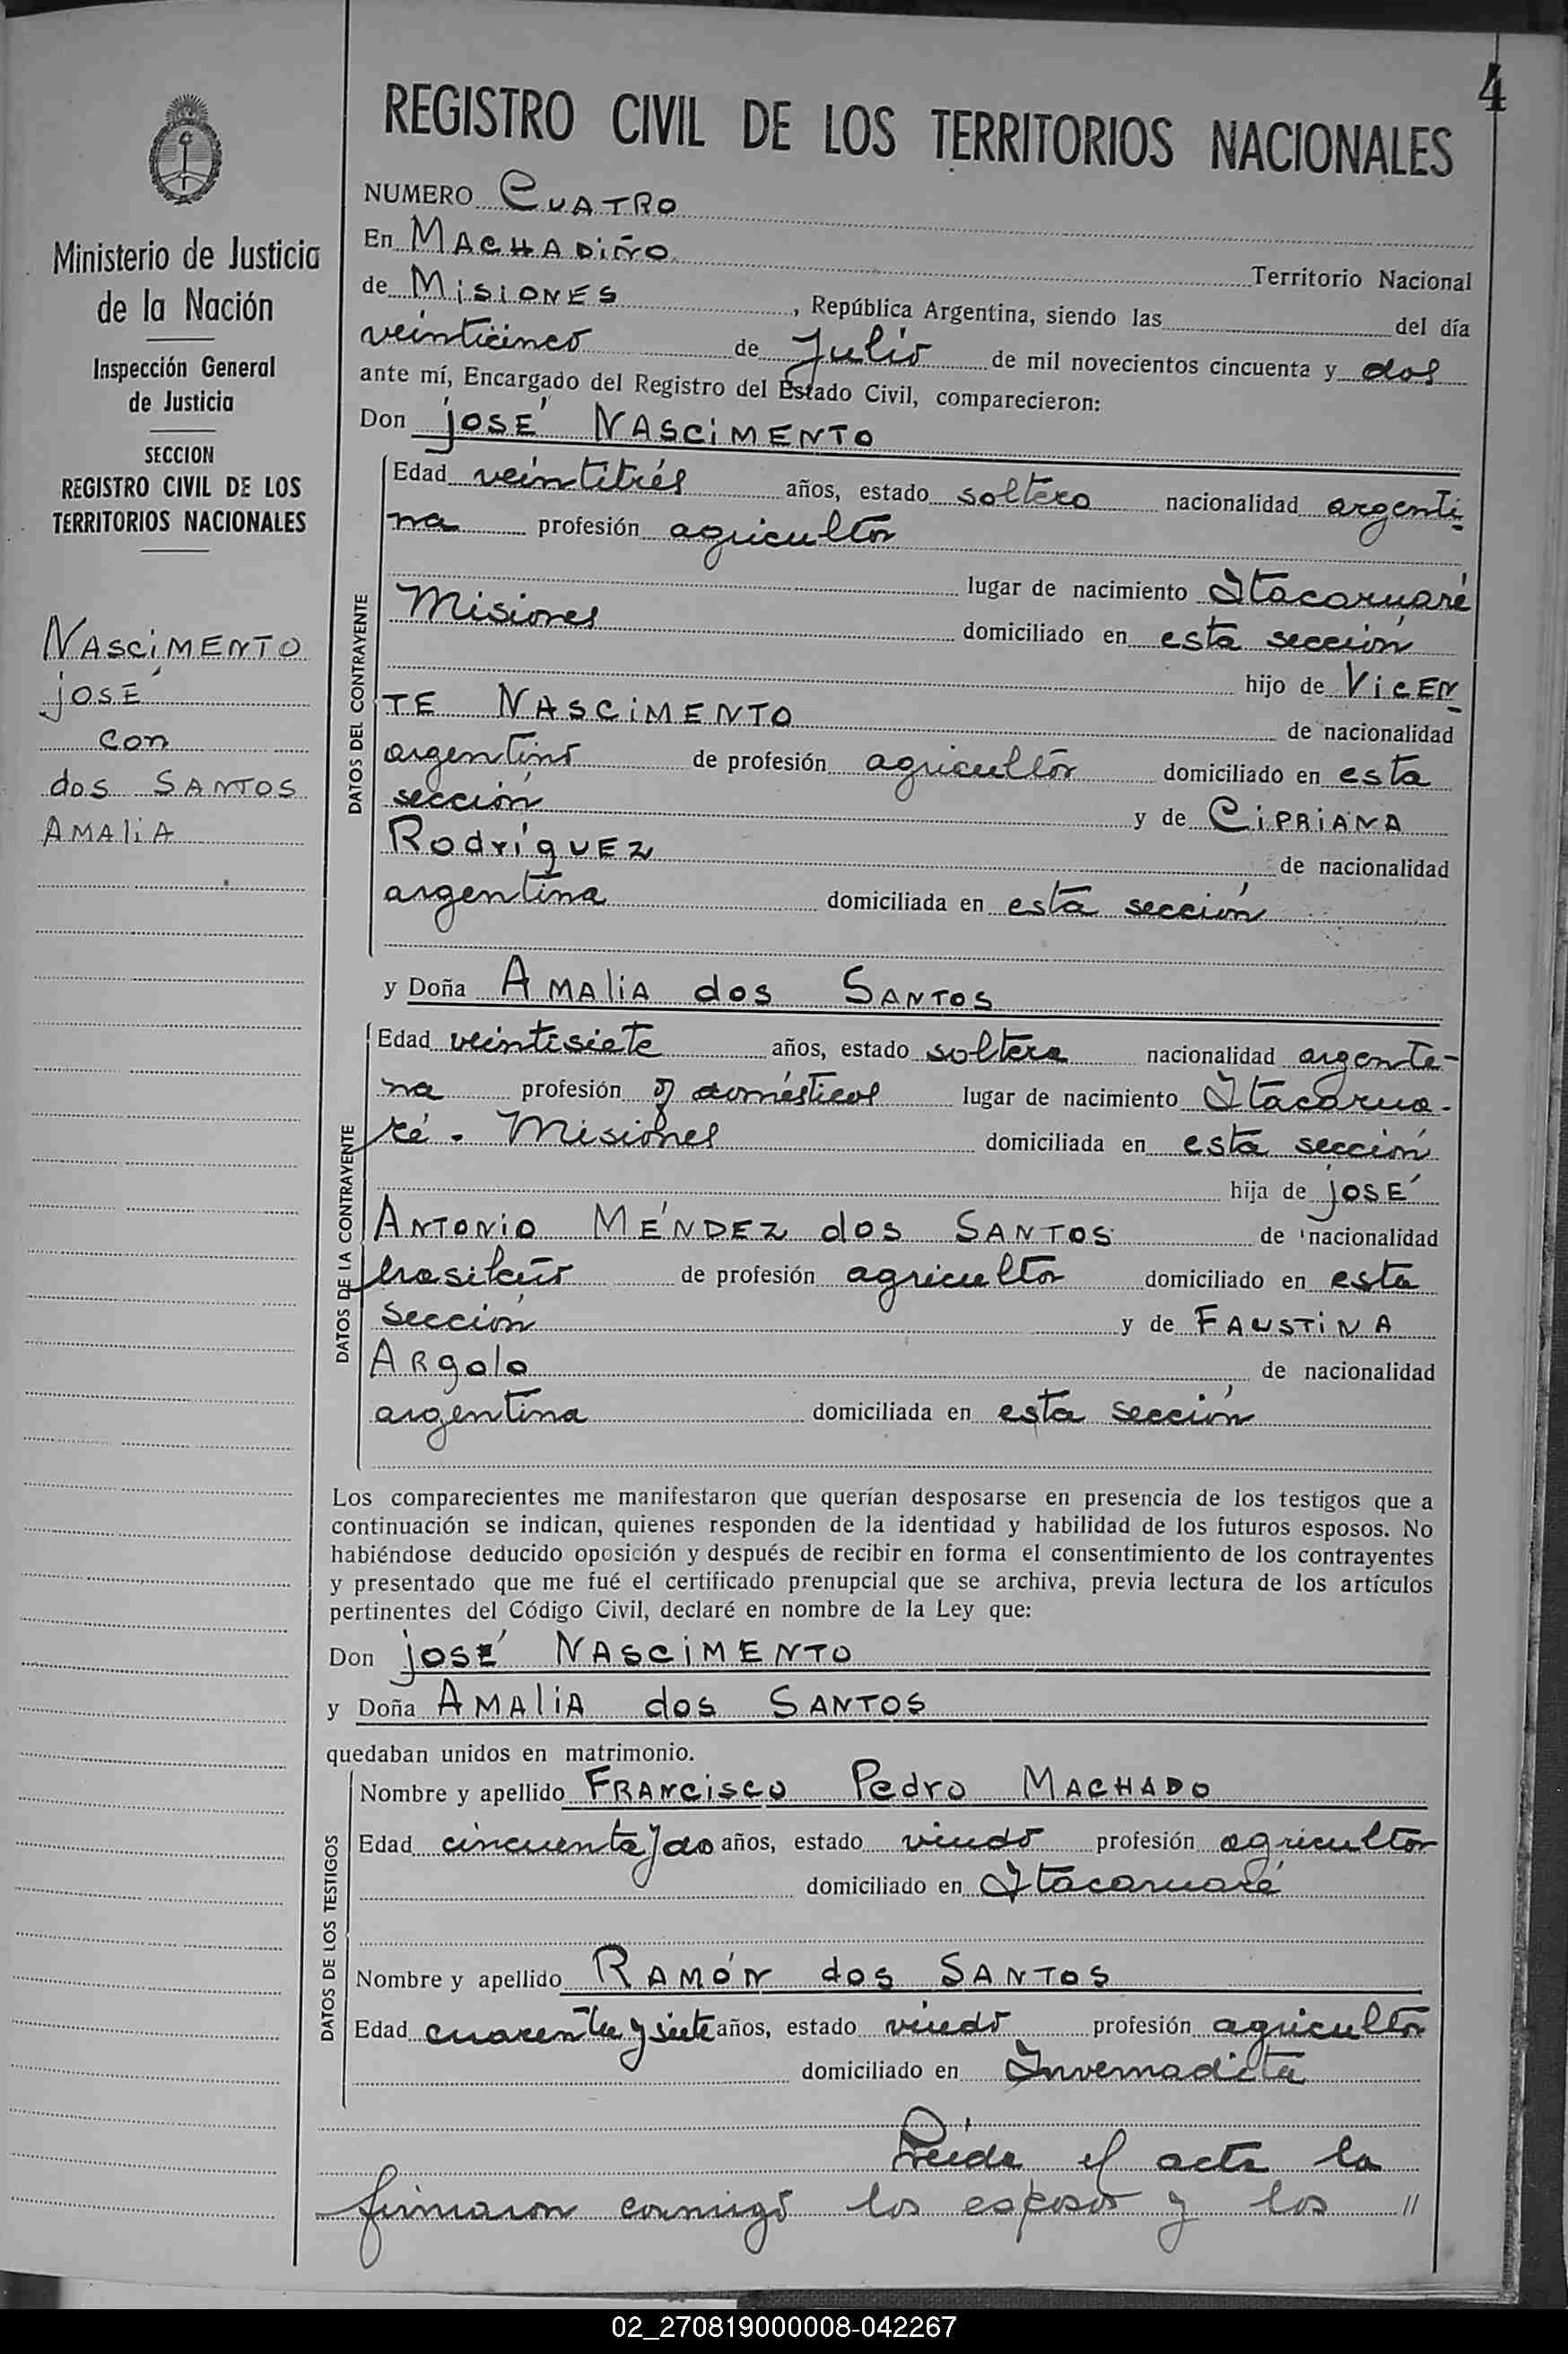 4
REGISTRO CIVIL DE LOS TERRITORIOS NACIONALES
Ministerio de Justicia
de la Nación
Inspección General
de Justicia
SECCION
REGISTRO CIVIL DE LOS
TERRITORIOS NACIONALES
NASCiMENTO
jOSÉ
con
dos SANTOS
AMAliA
NUMERO CUATRO
En MACHADiÑO Territorio Nacional
de MiSiONES, República Argentina, siendo las del día
veinticinco de Julio de mil novecientos cincuenta y dos
ante mí, Encargado del Registro del Estado Civil, comparecieron:
Don jOSÉ NASCiMENTO
DATOS DEL CONTRAYENTE
Edad veintitrés años, estado soltero nacionalidad argenti-
na profesión agricultor
lugar de nacimiento Itacaruaré
Misiones domiciliado en esta sección
hijo de ViCEN-
TE NASCiMENTO de nacionalidad
argentino de profesión agricultor domiciliado en esta
sección y de CiPRiANA
RodríguEz de nacionalidad
argentina domiciliada en esta sección
y Doña AMAliA dos SANTOS
DATOS DE LA CONTRAYENTE
Edad veintisiete años, estado soltera nacionalidad argenti-
na profesión q/ domésticos lugar de nacimiento Itacarua-
ré - Misiones domiciliada en esta sección
hija de jOSÉ
ANTONiO MÉNDEZ dos SANTOS de nacionalidad
brasileño de profesión agricultor domiciliado en esta
sección y de FAUSTiNA
ARgolo de nacionalidad
argentina domiciliada en esta sección
Los comparecientes me manifestaron que querían desposarse en presencia de los testigos que a
continuación se indican, quienes responden de la identidad y habilidad de los futuros esposos. No
habiéndose deducido oposición y después de recibir en forma el consentimiento de los contrayentes
y presentado que me fué el certificado prenupcial que se archiva, previa lectura de los artículos
pertinentes del Código Civil, declaré en nombre de la Ley que:
Don jOSÉ NASCiMENTO
y Doña AMAliA dos SANTOS
quedaban unidos en matrimonio.
DATOS DE LOS TESTIGOS
Nombre y apellido FRANCiSCO Pedro MACHADO
Edad cincuenta y dos años, estado viudo profesión agricultor
domiciliado en Itacaruaré
Nombre y apellido RAMÓN dos SANTOS
Edad cuarenta y siete años, estado viudo profesión agricultor
domiciliado en Invernadita
Leida el acta la
firmaron conmigo los esposos y los //
02_270819000008-042267